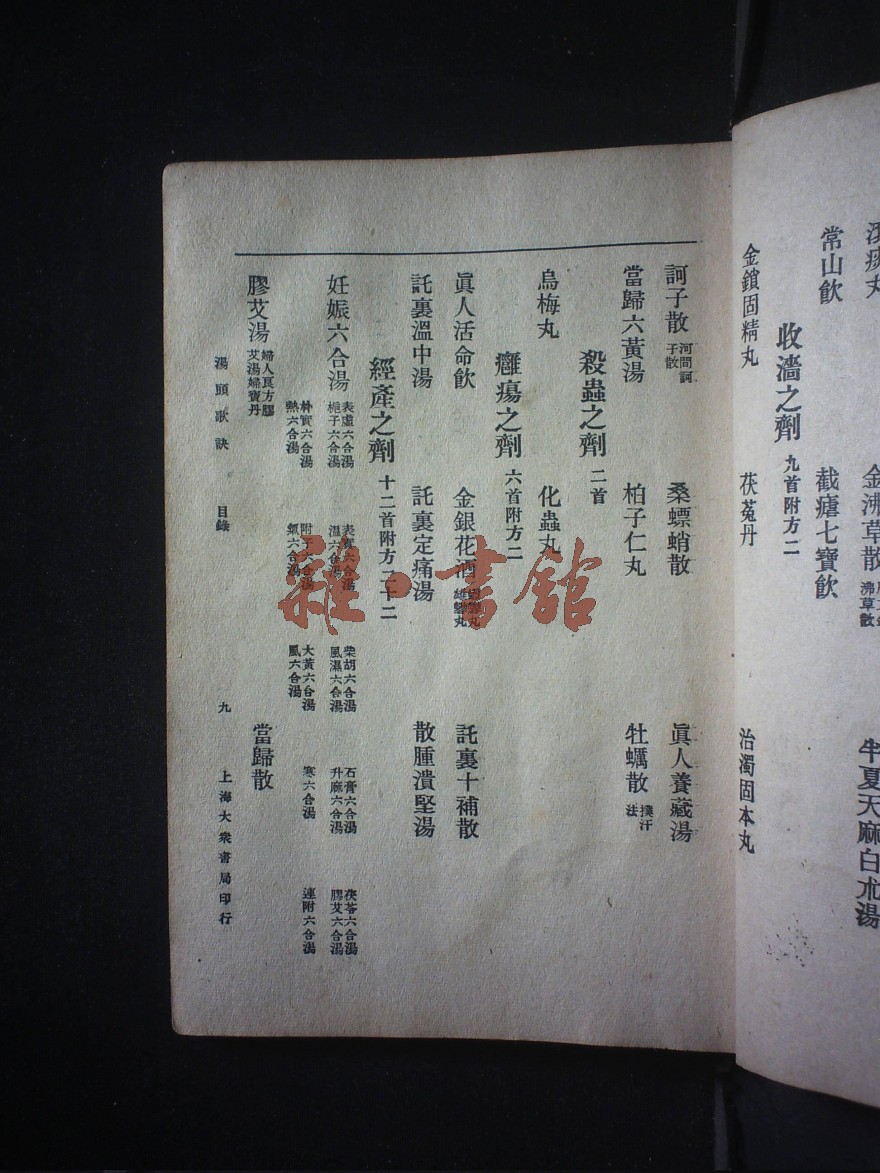 滾痰丸　金沸草散　半夏天麻白朮湯
常山飲　截瘧七寶飲
收濇之劑　九首附方二
金鎖固精丸　茯菟丹　治濁固本丸
訶子散　河間訶子散　桑螵蛸散　眞人養藏湯
當歸六黃湯　柏子仁丸　牡蠣散　撲汗法
殺蟲之劑　二首
烏梅丸　化蟲丸
癰瘍之劑　六首附方二
眞人活命飲　金銀花酒　託裏十補散
託裏溫中湯　託裏定痛湯　散腫潰堅湯
經產之劑　十二首附方二十二
妊娠六合湯　表虛六合湯　表實六合湯　柴胡六合湯　石膏六合湯　茯苓六合湯
梔子六合湯　溫六合湯　風濕六合湯　升麻六合湯　膠艾六合湯
朴實六合湯　附子六合湯　大黃六合湯　寒六合湯　連附六合湯
熱六合湯　氣六合湯　風六合湯
膠艾湯　婦人良方膠艾湯婦寶丹　當歸散
湯頭歌訣　目錄　九　上海大衆書局印行
雜·書館